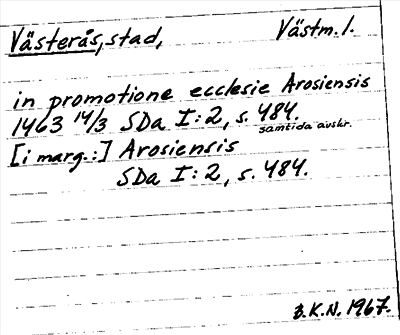 Västerås, stad, Västm. l.
in promotione ecclesie Arosiensis
1463 14/3 SDa I:2, s. 484.
samtida avskr.
[i marg.:] Arosiensis
SDa I:2, s. 484.
B.K.N. 1967.